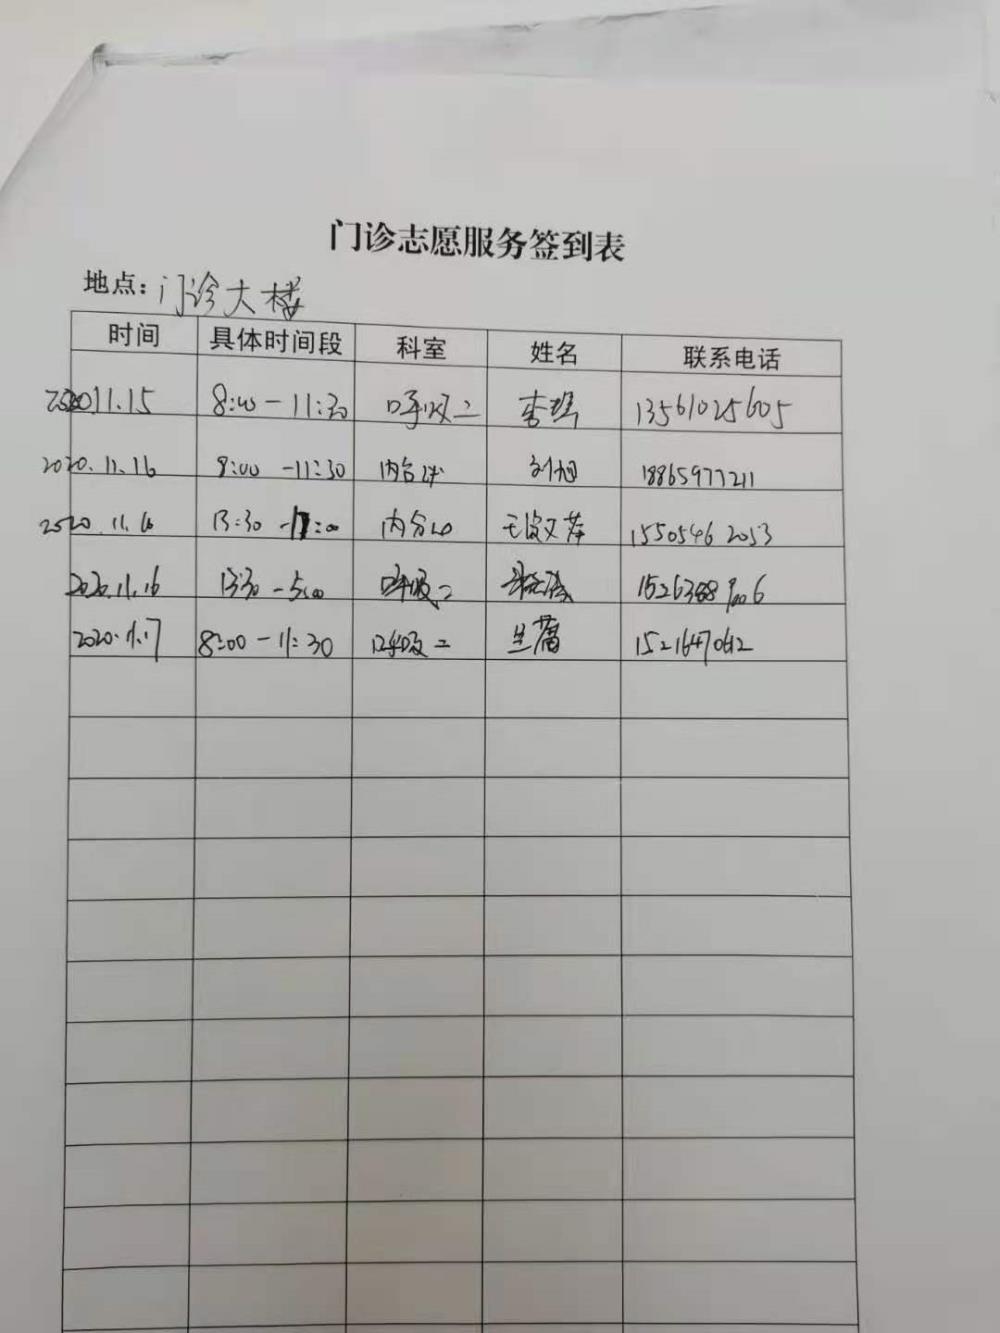 门诊志愿服务签到表
地点：门诊大楼
时间 具体时间段 科室 姓名 联系电话
202011.15 8:00-11:30 呼吸二 李 13561025605
2020.11.16 8:00-11:30 内分泌 刘旭 18865977211
2020.11.16 13:30-17:00 内分泌 15505462053
2020.11.16 13:30-5:00 呼吸二
2020.11.17 8:00-11:30 呼吸二 兰腐